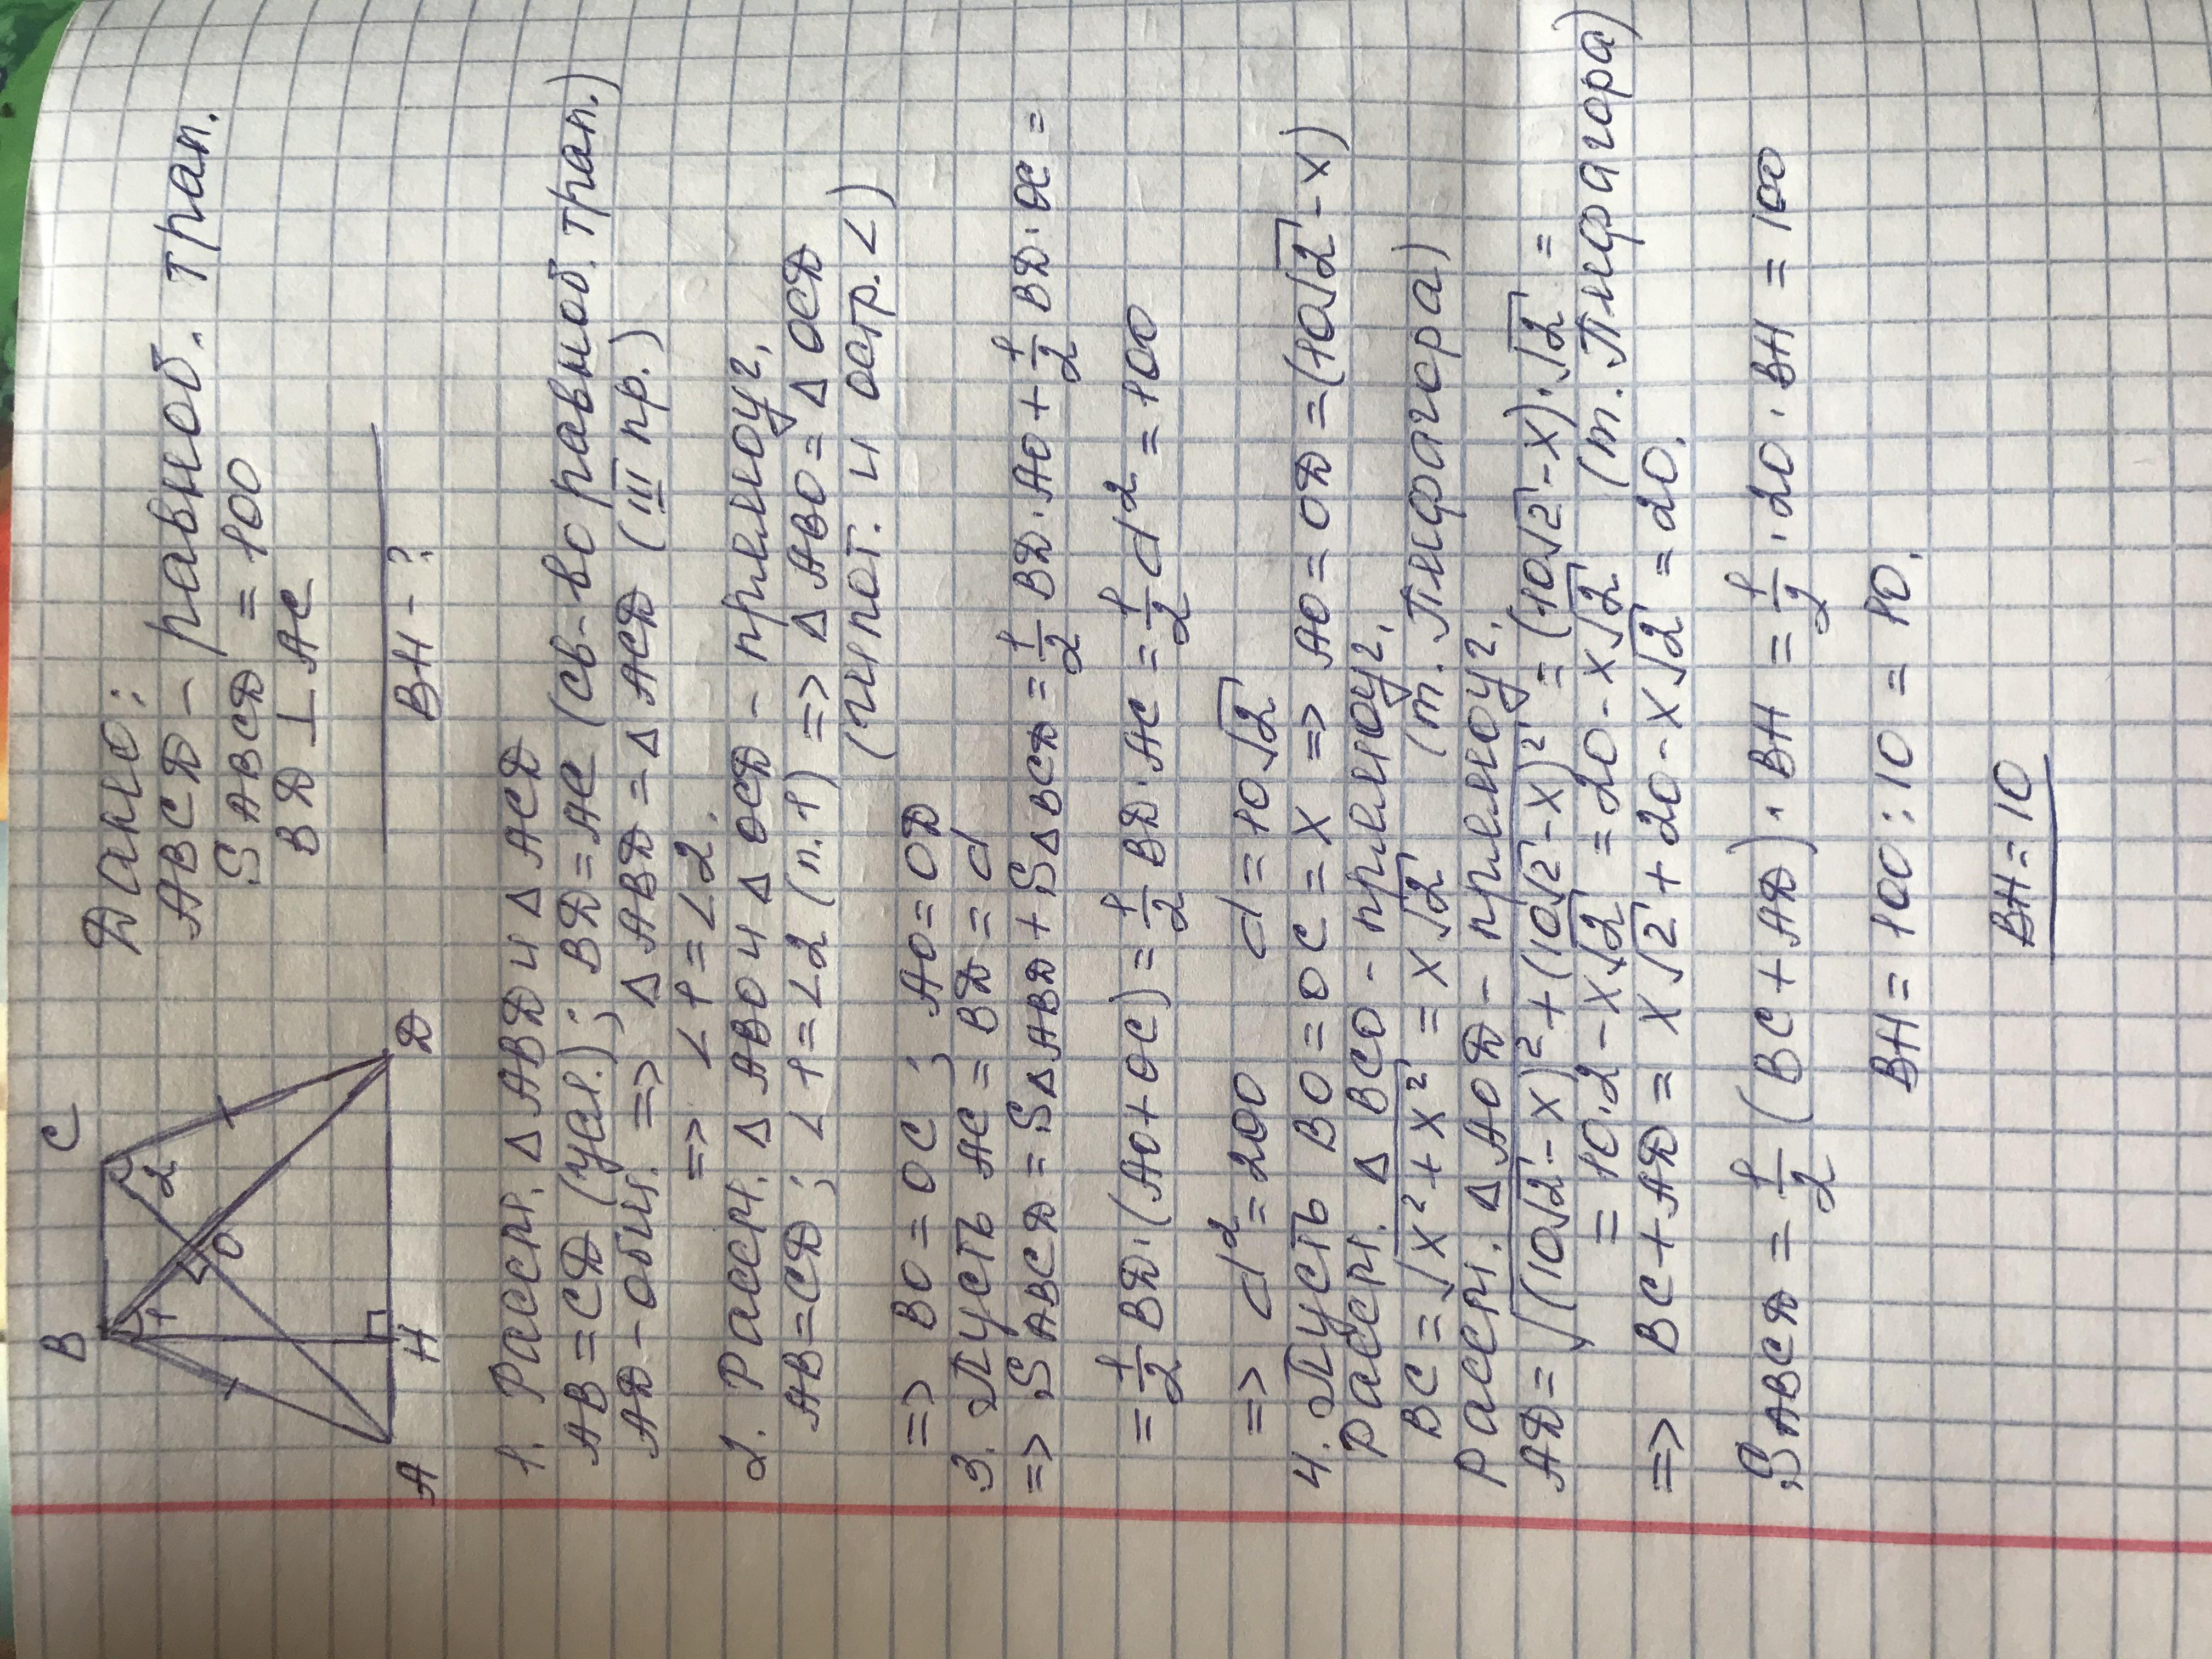 B C
1 2
O
A H Д
Дано:
ABCД - равноб. трап.
S ABCД = 100
BД ⊥ AC
BH - ?
1. Рассм. Δ ABД и Δ ACД
AB = CД (усл.); BД = AC (св-во равноб. трап.)
AД - общ. => Δ ABД = Δ ACД (III пр.)
=> ∠1 = ∠2.
2. Рассм. Δ ABO и Δ OCД - прямоуг.
AB = CД; ∠1 = ∠2 (п. 1) => Δ ABO = Δ OCД
(гипот. и остр. ∠)
=> BO = OC; AO = OД
3. Пусть AC = BД = d
=> S ABCД = S Δ ABД + S Δ BCД = 1/2 BД · AO + 1/2 BД · OC =
= 1/2 BД · (AO + OC) = 1/2 BД · AC = 1/2 d² = 100
=> d² = 200 d = 10√2
4. Пусть BO = OC = x => AO = OД = (10√2 - x)
Рассм. Δ BCO - прямоуг.
BC = √x² + x² = x√2 (т. Пифагора)
Рассм. Δ AOД - прямоуг.
AД = √(10√2 - x)² + (10√2 - x)² = (10√2 - x) · √2 =
= 10 · 2 - x√2 = 20 - x√2 (т. Пифагора)
=> BC + AД = x√2 + 20 - x√2 = 20.
S ABCД = 1/2 (BC + AД) · BH = 1/2 · 20 · BH = 100
BH = 100 : 10 = 10.
BH = 10